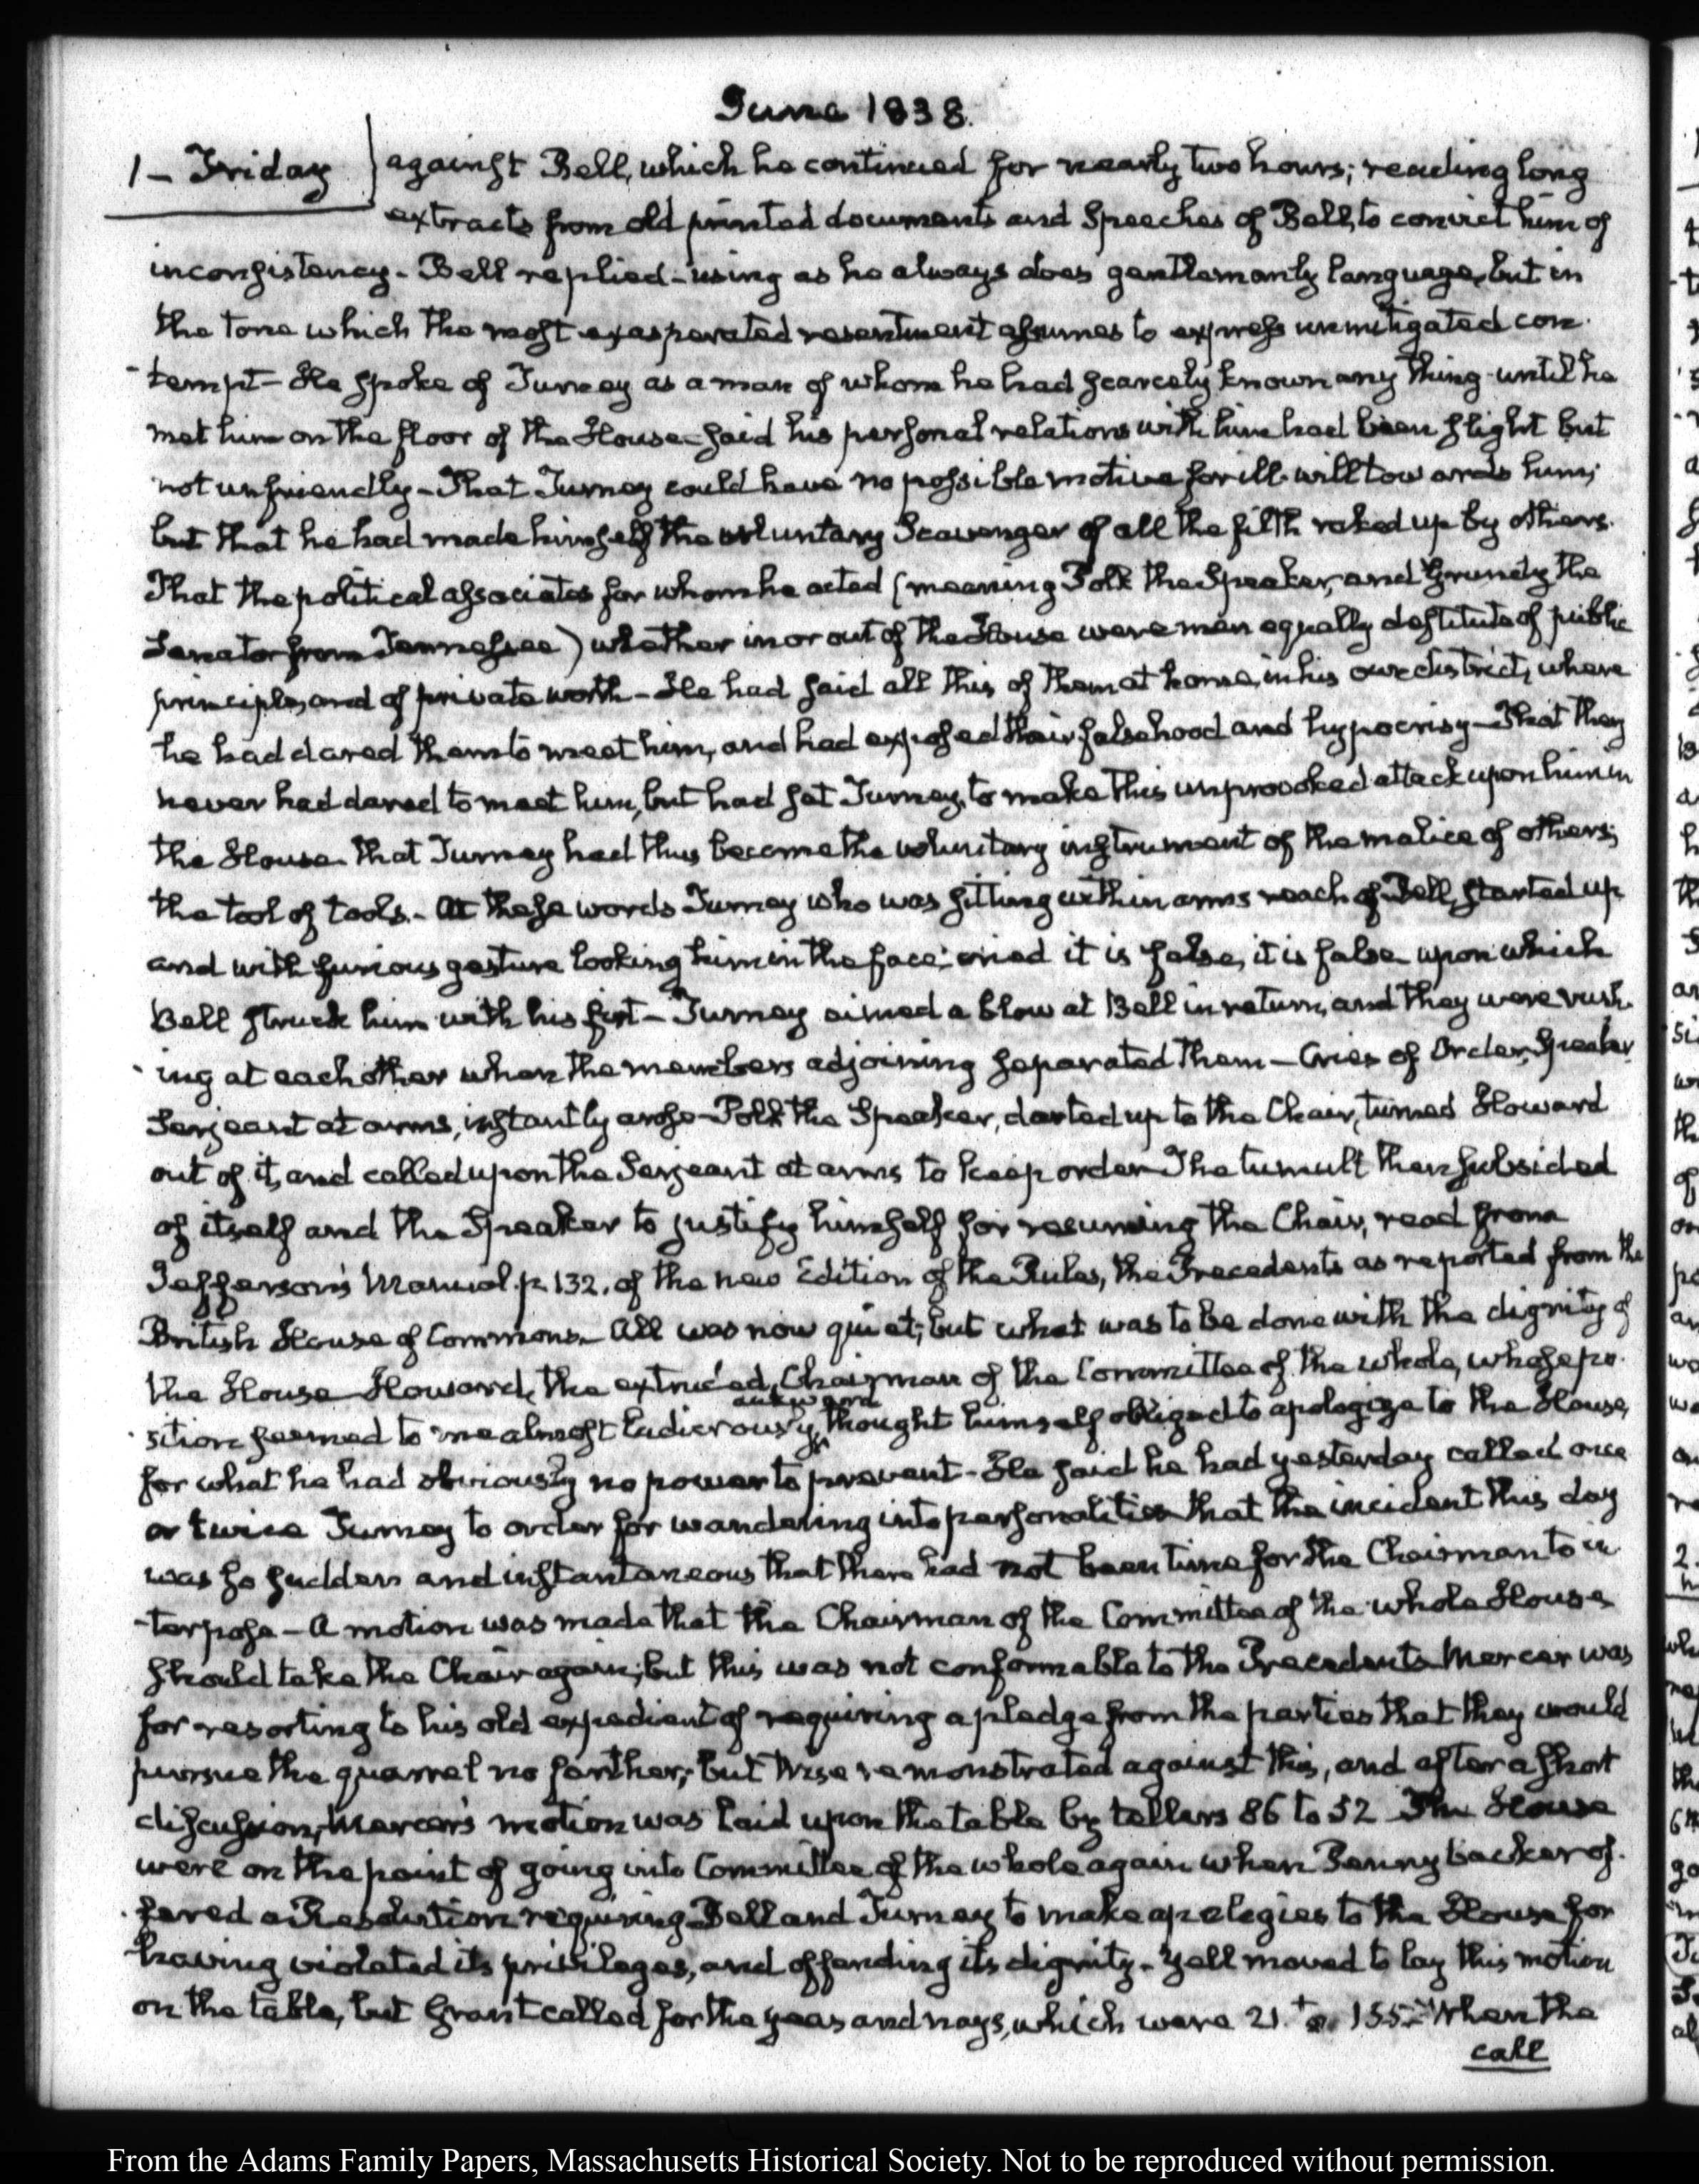 June 1838.
1 – Friday
against Bell, which he continued for nearly two hours; reading long
extracts from old printed documents and Speeches of Bell, to convict him of
inconsistency – Bell replied – using as he always does gentlemanly language, but in
the tone which the most exasperated resentment assumes to express unmitigated con-
-tempt – He spoke of Turney as a man of whom he had scarcely known any thing until he
met him on the floor of the House – said his personal relations with him had been slight but
not unfriendly – That Turney could have no possible motive for ill-will towards him;
but that he had made himself the voluntary Scavenger of all the filth raked up by others.
That the political associates for whom he acted (meaning Polk the Speaker, and Grundy the
Senator from Tennessee) whether in or out of the House were men equally destitute of public
principle, and of private worth – He had said all this of them at home, in his own district, where
he had dared them to meet him, and had exposed their falsehood and hypocrisy – That they
never had dared to meet him, but had set Turney, to make this unprovoked attack upon him in
the House – That Turney had thus become the voluntary instrument of the malice of others;
the tool of tools. – At these words Turney who was sitting within arms reach of Bell, started up
and with furious gesture looking him in the face, cried it is false, it is false upon which
Bell struck him with his fist – Turney aimed a blow at Bell in return, and they were rush-
-ing at each other when the members adjoining separated them – Cries of Order, Speaker
Serjeant at arms, instantly arose – Polk the Speaker, darted up to the Chair, turned Howard
out of it, and called upon the Serjeant at arms to keep order – The tumult then subsided
of itself and the Speaker to justify himself for resuming the Chair, read from
Jefferson's Manual. p. 132. of the new Edition of the Rules, the Precedents as reported from the
British House of Commons – All was now quiet; but what was to be done with the dignity of
the House – Howard, the extruded, Chairman of the Committee of the whole, whose po-
-sition seemed to me almost ludicrously awkward thought himself obliged to apologize to the House,
for what he had obviously no power to prevent – He said he had yesterday called once
or twice Turney to order for wandering into personalities – that the incident this day
was so sudden and instantaneous that there had not been time for the Chairman to in-
-terpose – A motion was made that the Chairman of the Committee of the whole House
should take the Chair again; but this was not conformable to the Precedents – Mercer was
for resorting to his old expedient of requiring a pledge from the parties that they would
pursue the quarrel no farther; but Wise remonstrated against this, and after a short
discussion, Mercer's motion was laid upon the table by tellers 86 to 52 The House
were on the point of going into Committee of the whole again when Pennybacker of-
-fered a Resolution requiring Bell and Turney to make apologies to the House for
having violated its privileges, and offending its dignity – Yell moved to lay this motion
on the table, but Grant called for the yeas and nays, which were 21. to 155 – When the
call
From the Adams Family Papers, Massachusetts Historical Society. Not to be reproduced without permission.